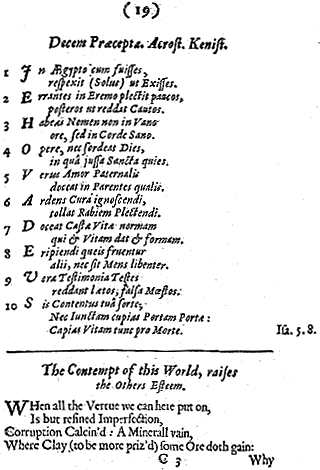 (19)
Decem Præcepta. Acrost. Kenist.
1 In Ægypto cum fuisses,
respexit (Solus) ut Exisses.
2 Errantes in Eremo plectit paucos,
posteros ut reddat Cautos.
3 Habeas Nomen non in Vano
ore, sed in Corde Sano.
4 Opere, nec sordeat Dies,
in quâ jussa Sancta quies.
5 Verus Amor Paternalis
doceat in Parentes qualis.
6 Ardens Curâ ignoscendi,
tollat Rabiem Plectendi.
7 Doceat Casta Vita normam
qui & Vitam dat & formam.
8 Eripiendi queis fruentur
alii, nec sit Mens libenter.
9 Vera Testimonia Testes
reddant lætos, falsa Mæstos.
10 Sis Contentus tuâ sorte,
Nec Iunctam cupias Portam Portæ:
Capias Vitam tunc pro Morte. Isa. 5.8.
The Contempt of this World, raises
the Others Esteem.
WHen all the Vertue we can here put on,
Is but refined Imperfection,
Corruption Calcin'd: A Minerall vain,
Where Clay (to be more priz'd) some Ore doth gain:
C 3 Why